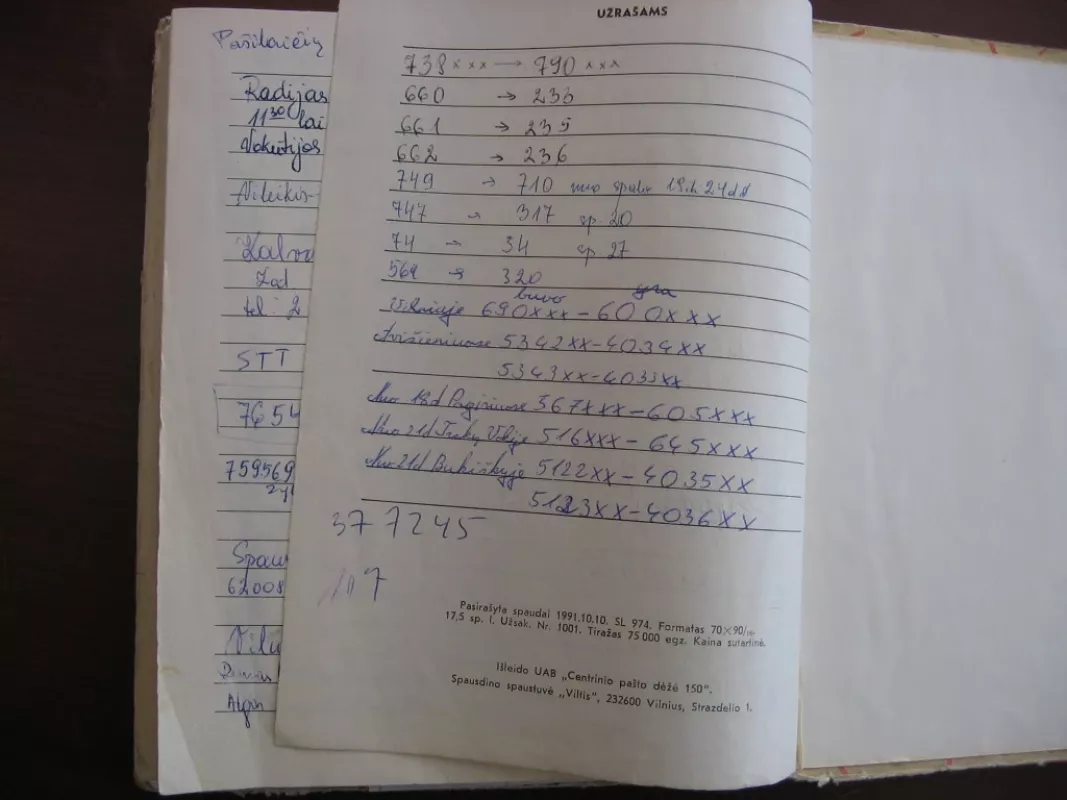 Pašilaičių
Radijas
11 30 lai
Vokietijos
Žad
tel: 2
STT
7654
759569
Spau
62008
Vilu
UŽRAŠAMS
738xxx → 790xxx
660 → 233
661 → 235
662 → 236
749 → 710 nuo spalio 19 ir 24 d d
747 → 317 sp 20
74 → 34 sp 27
569 → 320
buvo yra
Vilniuje 690xxx – 600xxx
Avižieniuose 5342xx – 4034xx
5343xx – 4033xx
Nuo 18d Pagiriuose 567xxx – 605xxx
Nuo 21d Trakų Vokėje 516xxx – 645xxx
Nuo 21d Bukiškyje 5122xx – 4035xx
5123xx – 4036xx
377245
107
Pasirašyta spaudai 1991.10.10. SL 974. Formatas 70×90/16
17,5 sp. l. Užsak. Nr. 1001. Tiražas 75 000 egz. Kaina sutartinė.
Išleido UAB „Centrinio pašto dėžė 150".
Spausdino spaustuvė „Viltis", 232600 Vilnius, Strazdelio 1.